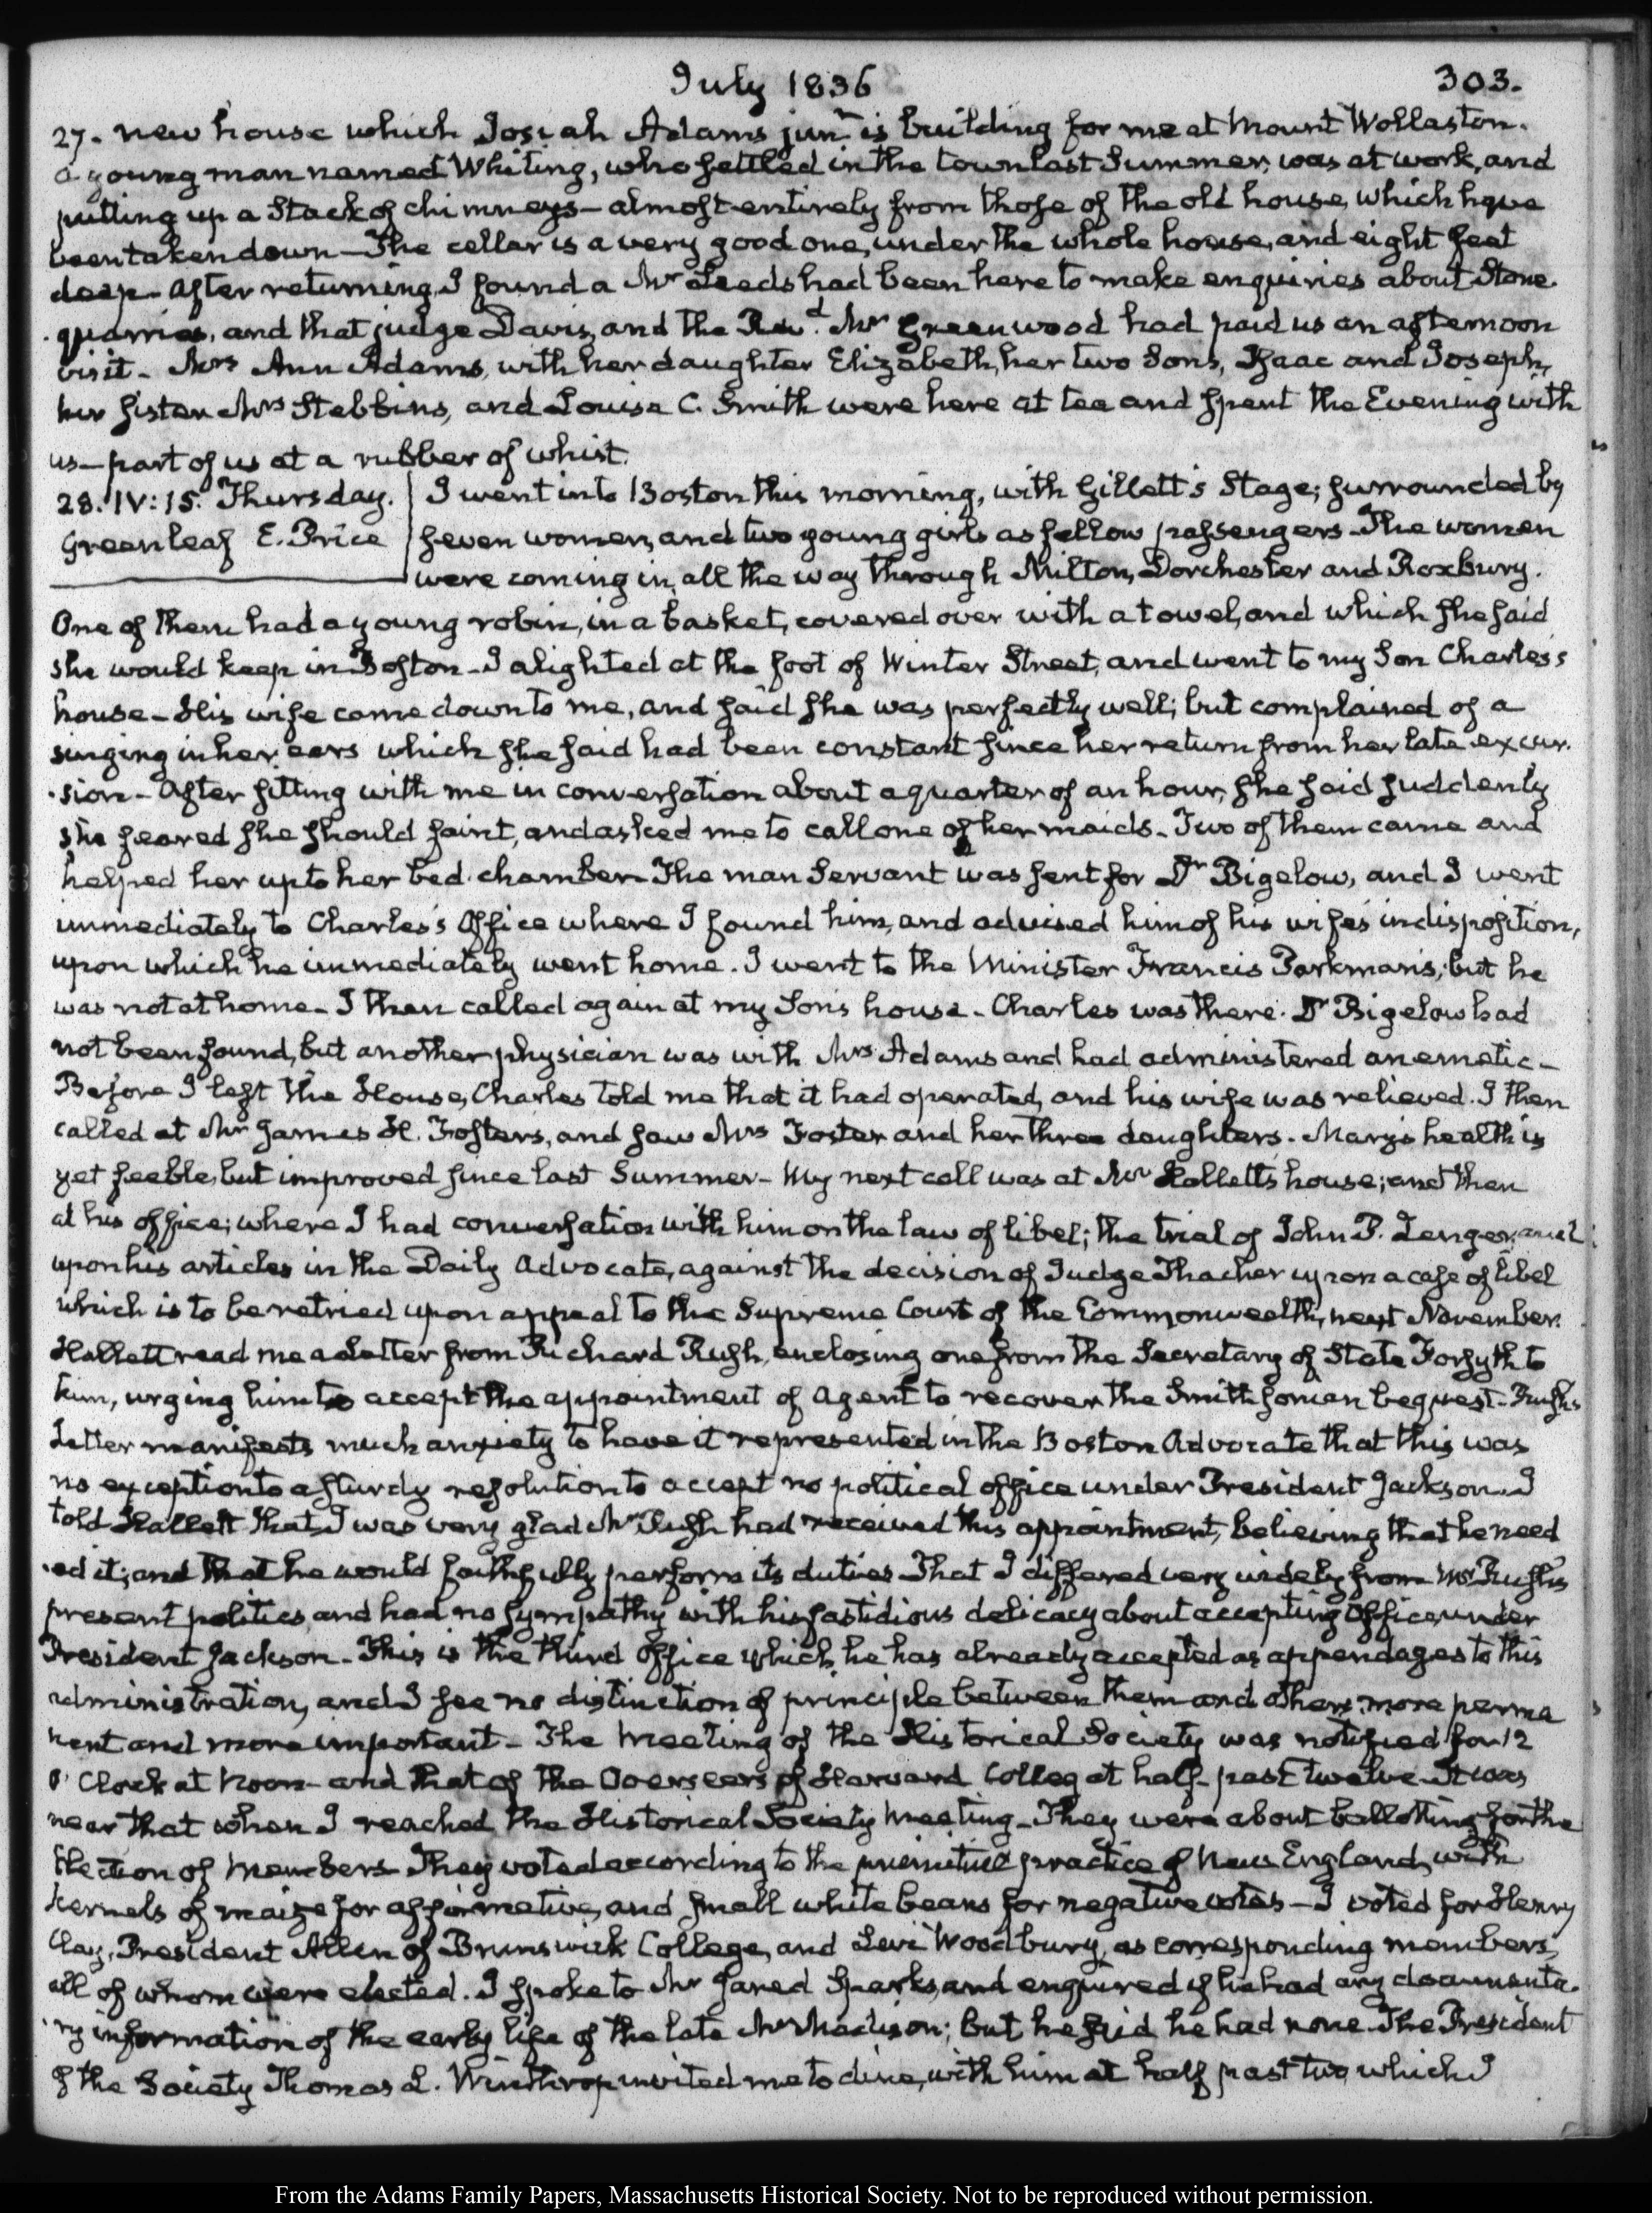 July 1836 303.
27. new house which Josiah Adams junr. is building for me at Mount Wollaston.
a young man named Whiting, who settled in the town last Summer, was at work, and
putting up a Stack of chimneys—almost entirely from those of the old house, which have
been taken down—The cellar is a very good one, under the whole house, and eight feet
deep—After returning, I found a Mr Leeds had been here to make enquiries about Stone
quarries, and that judge Davis, and the Revd. Mr Greenwood had paid us an afternoon
visit—Mrs Ann Adams, with her daughter Elizabeth, her two Sons, Isaac and Joseph,
her sister Mrs Stebbins, and Louisa C. Smith were here at tea and spent the Evening with
us—part of us at a rubber of whist.
28. IV:15. Thursday. I went into Boston this morning, with Gillett's Stage; surrounded by
Greenleaf E. Price seven women, and two young girls as fellow passengers—The women
were coming in, all the way through Milton, Dorchester and Roxbury.
One of them had a young robin, in a basket, covered over with a towel, and which she said
she would keep in Boston—I alighted at the foot of Winter Street, and went to my Son Charles's
house—His wife came down to me, and said she was perfectly well; but complained of a
singing in her ears which she said had been constant since her return from her late excur-
sion—After sitting with me in conversation about a quarter of an hour, she said suddenly
she feared she should faint, and asked me to call one of her maids—Two of them came and
helped her up to her bed chamber—The man Servant was sent for Dr Bigelow, and I went
immediately to Charles's Office where I found him, and advised him of his wife's indisposition,
upon which he immediately went home. I went to the Minister Francis Parkman's, but he
was not at home—I then called again at my Son's house—Charles was there. Dr Bigelow had
not been found, but another physician was with Mrs Adams and had administered an emetic—
Before I left the House, Charles told me that it had operated, and his wife was relieved. I then
called at Mr James H. Foster's, and saw Mrs Foster and her three daughters—Mary's health is
yet feeble, but improved since last Summer—My next call was at Mr Hallett's house; and then
at his office; where I had conversation with him on the law of libel; the trial of John B. and
upon his articles in the Daily Advocate, against the decision of Judge Thacher upon a case of libel
which is to be retried upon appeal to the Supreme Court of the Commonwealth, next November.
Hallett read me a Letter from Richard Rush, enclosing one from the Secretary of State Forsyth to
him, urging him to accept the appointment of Agent to recover the Smithsonian bequest—Rush's
Letter manifests much anxiety to have it represented in the Boston Advocate that this was
no exception to a sturdy resolution to accept no political office under President Jackson. I
told Hallett that I was very glad Mr Rush had received this appointment, believing that he need
ed it; and that he would faithfully perform its duties—That I differed very widely from Mr Rush's
present politics, and had no sympathy with his fastidious delicacy about accepting Office, under
President Jackson—This is the third Office which he has already accepted as appendages to this
administration, and I see no distinction of principle between them and others more perma
nent and more important—The Meeting of the Historical Society was notified for 12
O'Clock at Noon—and that of the Overseers of Harvard Colleg at half-past twelve—It was
near that when I reached the Historical Society Meeting—They were about ballotting for the
Election of Members—They voted according to the primitive practice of New England, with
kernels of maize for affirmative, and small white beans for negative votes—I voted for Henry
Clay, President Allen of Brunswick College, and Levi Woodbury, as corresponding members,
all of whom were elected. I spoke to Mr Jared Sparks, and enquired if he had any documenta-
ry information of the early life of the late Mr Madison; but he said he had none. The President
of the Society Thomas L. Winthrop invited me to dine, with him at half past two, which I
From the Adams Family Papers, Massachusetts Historical Society. Not to be reproduced without permission.